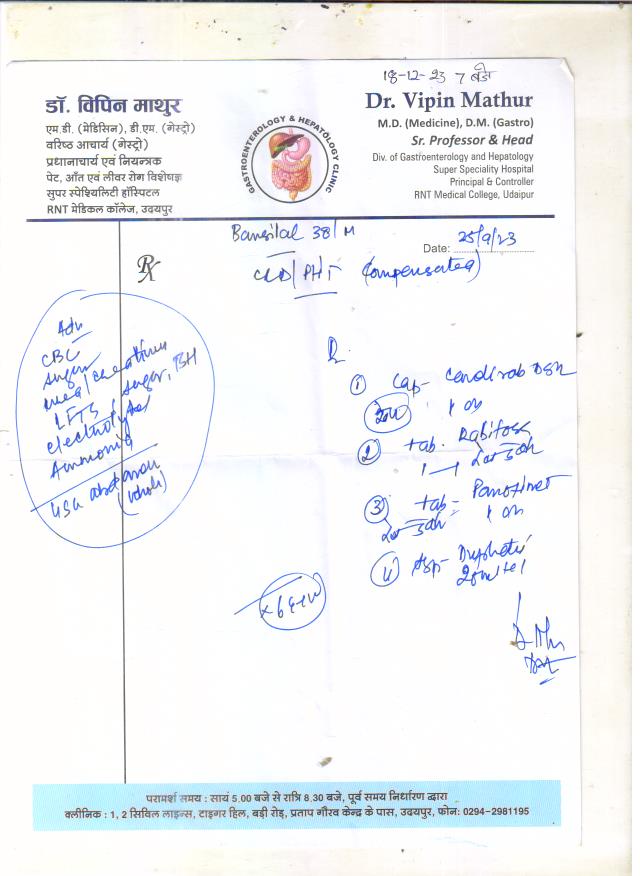 18-12-23 7 बजे
डॉ. विपिन माथुर
एम.डी. (मेडिसिन), डी.एम. (गेस्ट्रो)
वरिष्ठ आचार्य (गेस्ट्रो)
प्रधानाचार्य एवं नियन्त्रक
पेट, आँत एवं लीवर रोग विशेषज्ञ
सुपर स्पेश्यिलिटी हॉस्पिटल
RNT मेडिकल कॉलेज, उदयपुर
GASTROENTEROLOGY & HEPATOLOGY CLINIC
Dr. Vipin Mathur
M.D. (Medicine), D.M. (Gastro)
Sr. Professor & Head
Div. of Gastroenterology and Hepatology
Super Speciality Hospital
Principal & Controller
RNT Medical College, Udaipur
Bansilal 38/M
Date: 25/9/23
Rx
CLD/PHT (Compensated)
Adv
CBC
sugar
urea/creatinine
LFTS, sugar, TSH
electrolytes
Ammonia
USG abdomen
(whole)
① Cap- DSR
1 OD
② tab.
③ tab-
1 OD
④ syp-
20ml
परामर्श समय : सायं 5.00 बजे से रात्रि 8.30 बजे, पूर्व समय निर्धारण द्वारा
क्लीनिक : 1, 2 सिविल लाइन्स, टाइगर हिल, बड़ी रोड़, प्रताप गौरव केन्द्र के पास, उदयपुर, फोन: 0294-2981195